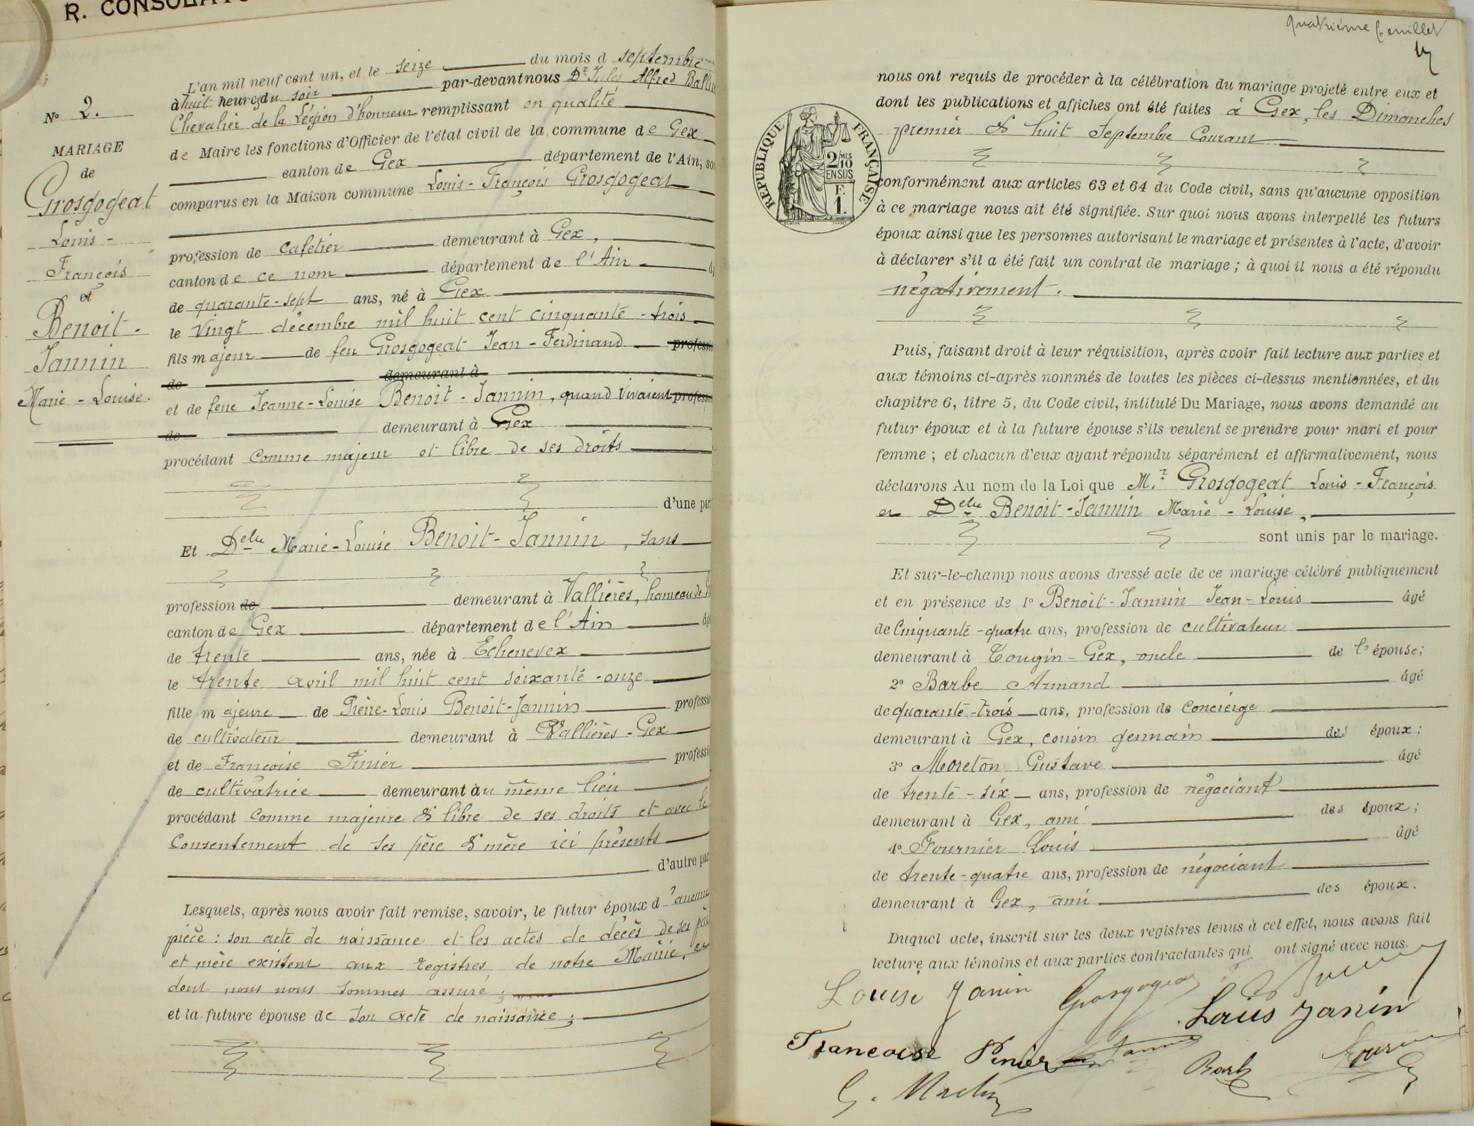 R. CONSOLATO
Nº 2.
MARIAGE
de
Grosgogeat
Louis-
François
et
Benoit-
Jannin
Marie-Louise.
L'an mil neuf cent un, et le seize du mois d septembre
à huit heures du soir par-devant nous Dr Jules Alfred
Chevalier de la Légion d'honneur remplissant en qualité
de Maire les fonctions d'Officier de l'état civil de la commune de Gex
canton de Gex département de l'Ain, so
comparus en la Maison commune Louis-François Grosgogeat
profession de cafetier demeurant à Gex,
canton de ce nom département de l'Ain
de quarante-sept ans, né à Gex
le vingt décembre mil huit cent cinquante-trois
fils majeur de feu Grosgogeat Jean-Ferdinand profess
de demeurant à
et de feue Jeanne-Louise Benoit-Jannin, quand vivaient profess
de demeurant à Gex
procédant comme majeur et libre de ses droits
d'une par
Et Delle Marie-Louise Benoit-Jannin, sans
profession de demeurant à Vallières, hameau de
canton de Gex département de l'Ain
de trente ans, née à Echenevex
le trente avril mil huit cent soixante-onze
fille majeure de Pierre-Louis Benoit-Jannin professi
de cultivateur demeurant à Vallières-Gex
et de Françoise Pinier professi
de cultivatrice demeurant au même lieu
procédant comme majeure & libre de ses droits et avec le
consentement de ses père & mère ici présents
d'autre par
Lesquels, après nous avoir fait remise, savoir, le futur époux d'aucune
pièce : son acte de naissance et les actes de décès de ses père
et mère existent aux registres de notre Mairie, ce
dont nous nous sommes assuré ;
et la future épouse de son acte de naissance ;
quatrième feuillet
RÉPUBLIQUE FRANÇAISE
2/10
EN SUS
F.
1.
nous ont requis de procéder à la célébration du mariage projeté entre eux et
dont les publications et affiches ont été faites à Gex, les Dimanches
premier & huit Septembre Courant
conformément aux articles 63 et 64 du Code civil, sans qu'aucune opposition
à ce mariage nous ait été signifiée. Sur quoi nous avons interpellé les futurs
époux ainsi que les personnes autorisant le mariage et présentes à l'acte, d'avoir
à déclarer s'il a été fait un contrat de mariage ; à quoi il nous a été répondu
négativement.
Puis, faisant droit à leur réquisition, après avoir fait lecture aux parties et
aux témoins ci-après nommés de toutes les pièces ci-dessus mentionnées, et du
chapitre 6, titre 5, du Code civil, intitulé Du Mariage, nous avons demandé au
futur époux et à la future épouse s'ils veulent se prendre pour mari et pour
femme ; et chacun d'eux ayant répondu séparément et affirmativement, nous
déclarons Au nom de la Loi que Mr Grosgogeat Louis-François
et Delle Benoit-Jannin Marie-Louise,
sont unis par le mariage.
Et sur-le-champ nous avons dressé acte de ce mariage célébré publiquement
et en présence de 1º Benoit-Jannin Jean-Louis âgé
de Cinquante-quatre ans, profession de cultivateur
demeurant à Tougin-Gex, oncle de l'épouse ;
2º Barbe Armand âgé
de quarante-trois ans, profession de concierge
demeurant à Gex, cousin germain des époux ;
3º Moreton Gustave âgé
de trente-six ans, profession de négociant
demeurant à Gex, ami des époux ;
4º Fournier Louis âgé
de trente-quatre ans, profession de négociant
demeurant à Gex, ami des époux.
Duquel acte, inscrit sur les deux registres tenus à cet effet, nous avons fait
lecture aux témoins et aux parties contractantes qui ont signé avec nous.
Louise Janin Grosgogeat
Louis Janin
Francoise Pinier Jannin Barbe
G.